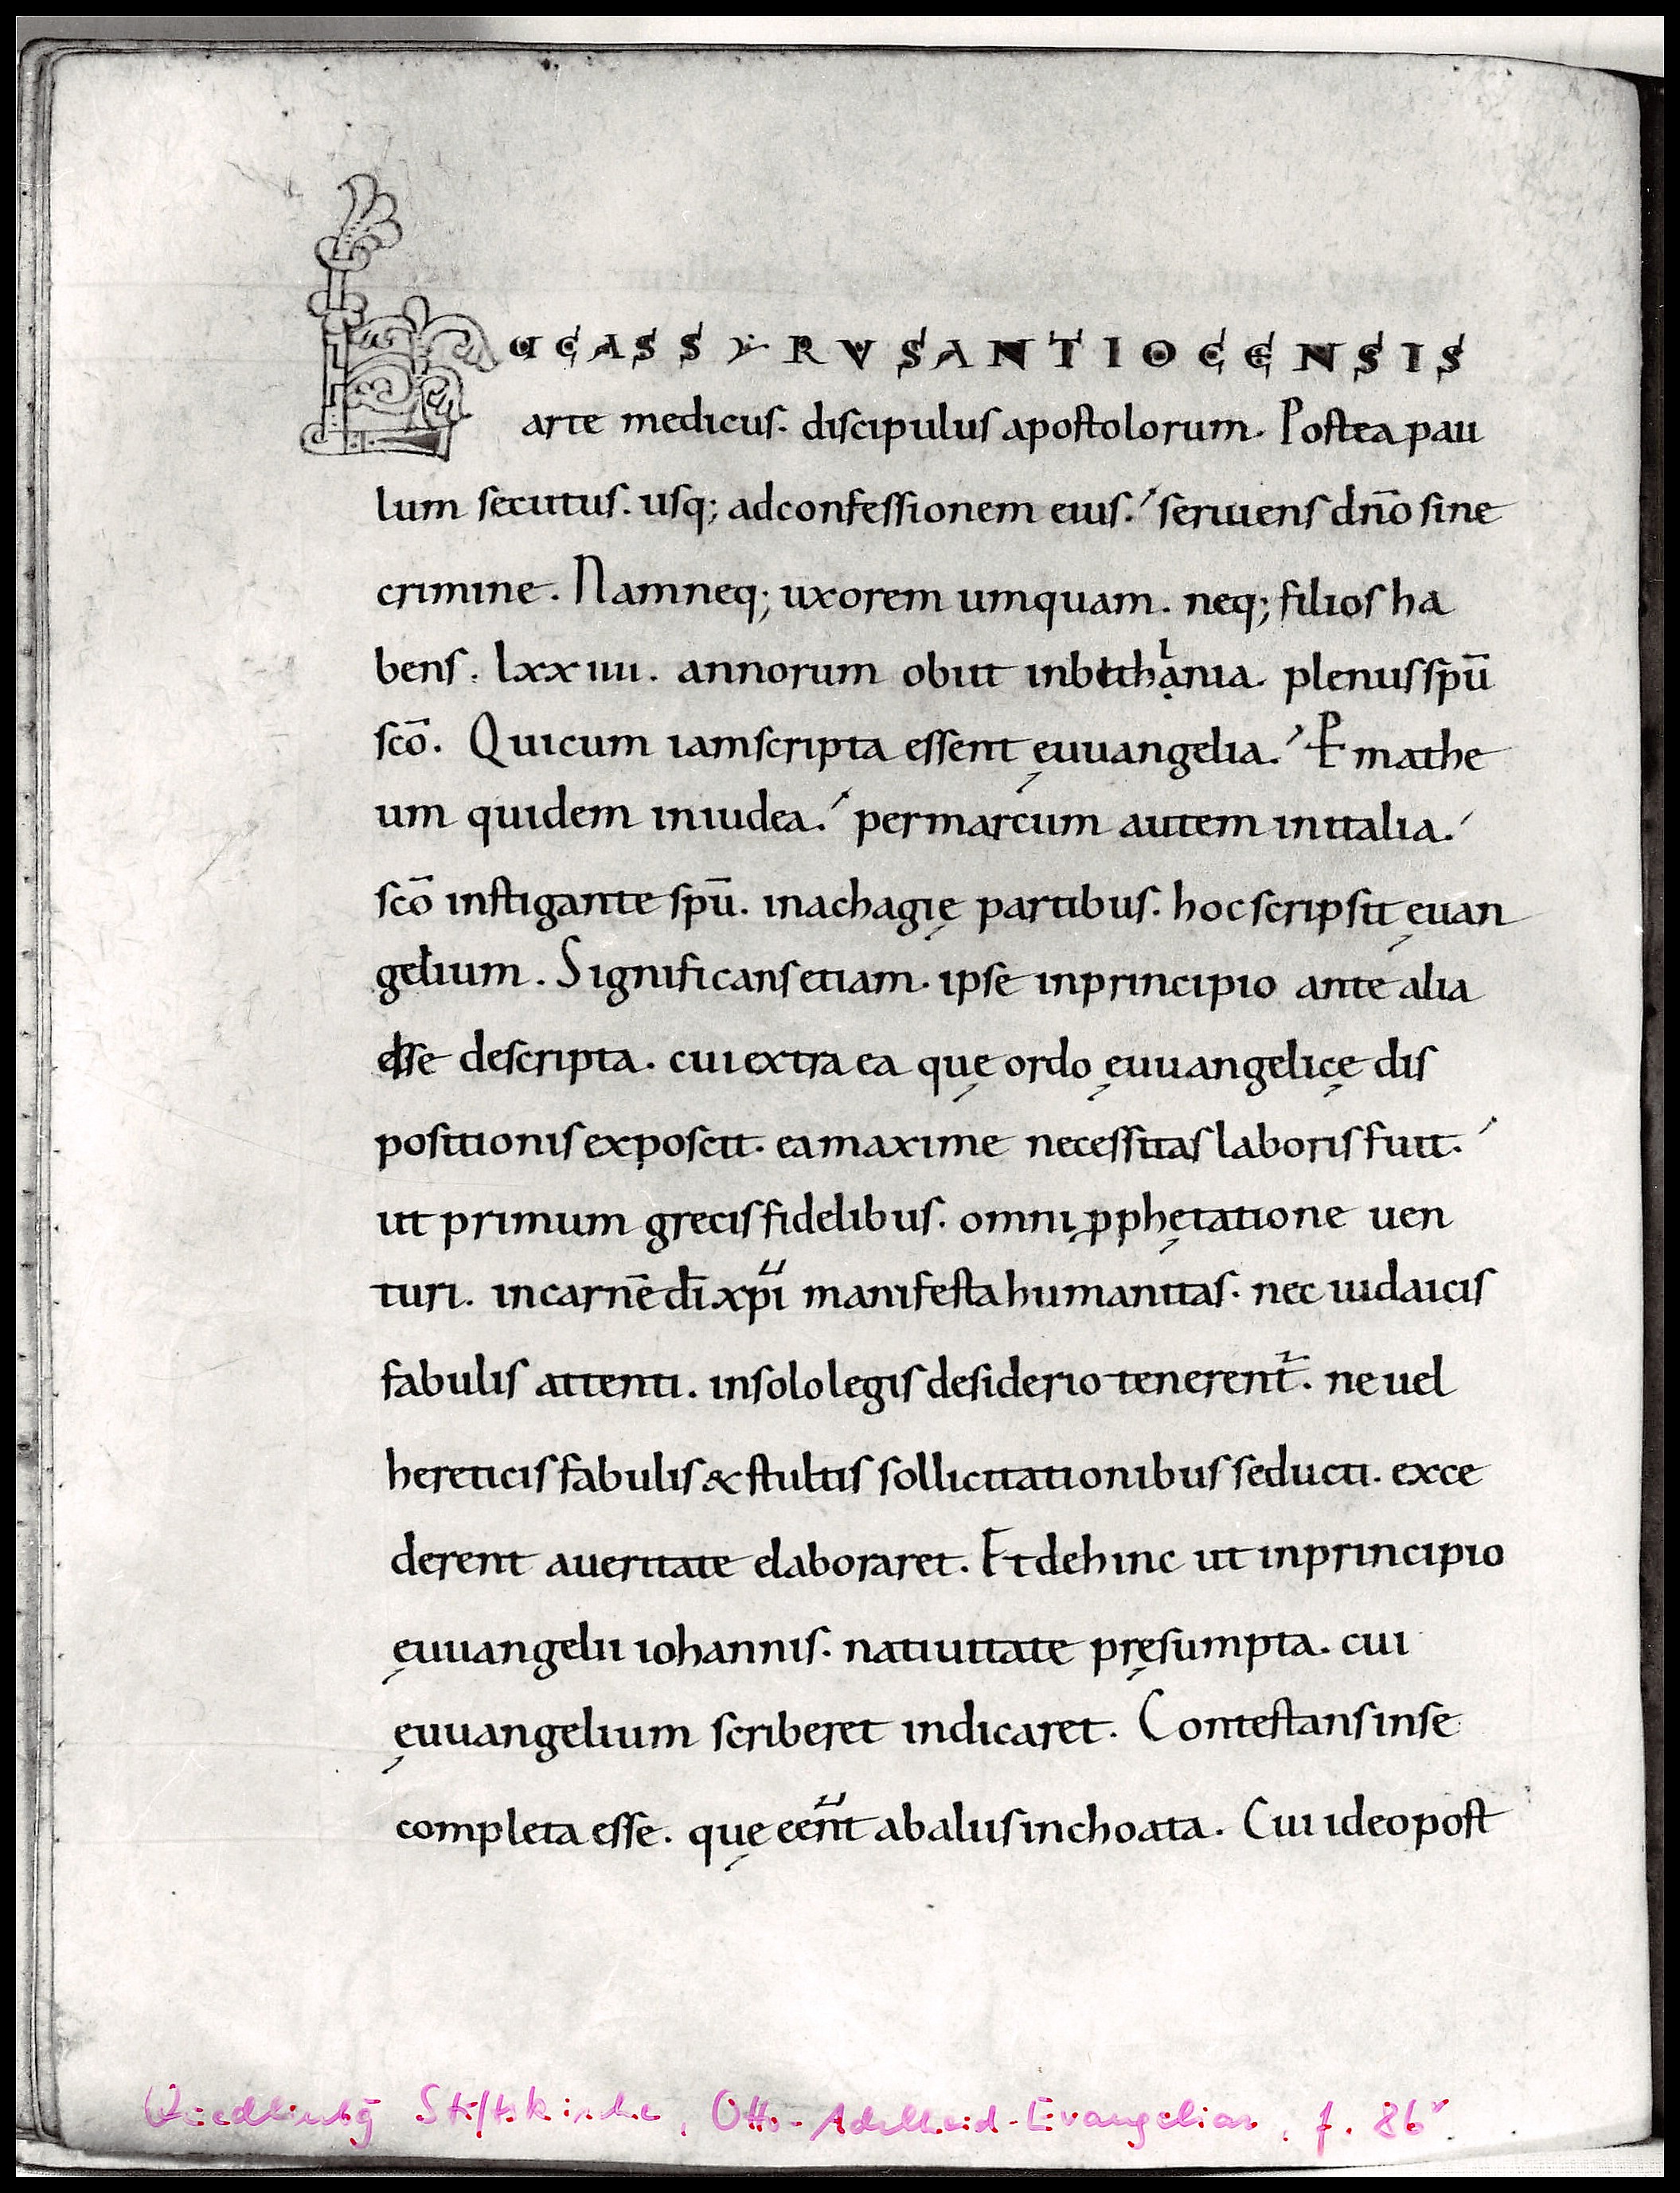 LUCAS SYRUS ANTIOCENSIS
arte medicus. discipulus apostolorum. Postea pau
lum secutus. usq; ad confessionem eius. seruiens dn̄o sine
crimine. Nam neq; uxorem umquam. neq; filios ha
bens. lxxiiii. annorum obiit in bithania. plenus sp̄u
sc̄o. Qui cum iam scripta essent ęuuangelia. Ꝑ mathe
um quidem in iudea. per marcum autem in italia.
sc̄o instigante sp̄u. in achagię partibus. hoc scripsit ęuan
gelium. Significans etiam. ipse in principio ante alia
esse descripta. cui extra ea quę ordo ęuuangelicę dis
positionis exposcit. ea maxime necessitas laboris fuit.
ut primum grecis fidelibus. omni ꝓphętatione uen
turi. in carnē dī xp̄i manifesta humanitas. nec iudaicis
fabulis attenti. in solo legis desiderio tenerent᷑. ne uel
hereticis fabulis & stultis sollicitationibus seducti. exce
derent a ueritate elaboraret. Et dehinc ut in principio
ęuuangelii iohannis. natiuitate pręsumpta. cui
ęuuangelium scriberet indicaret. Contestans in se
completa esse. quę eēnt ab aliis inchoata. Cui ideo post
Quedlinburg Stiftskirche, Otto-Adelheid-Evangeliar, f. 86ᵛ